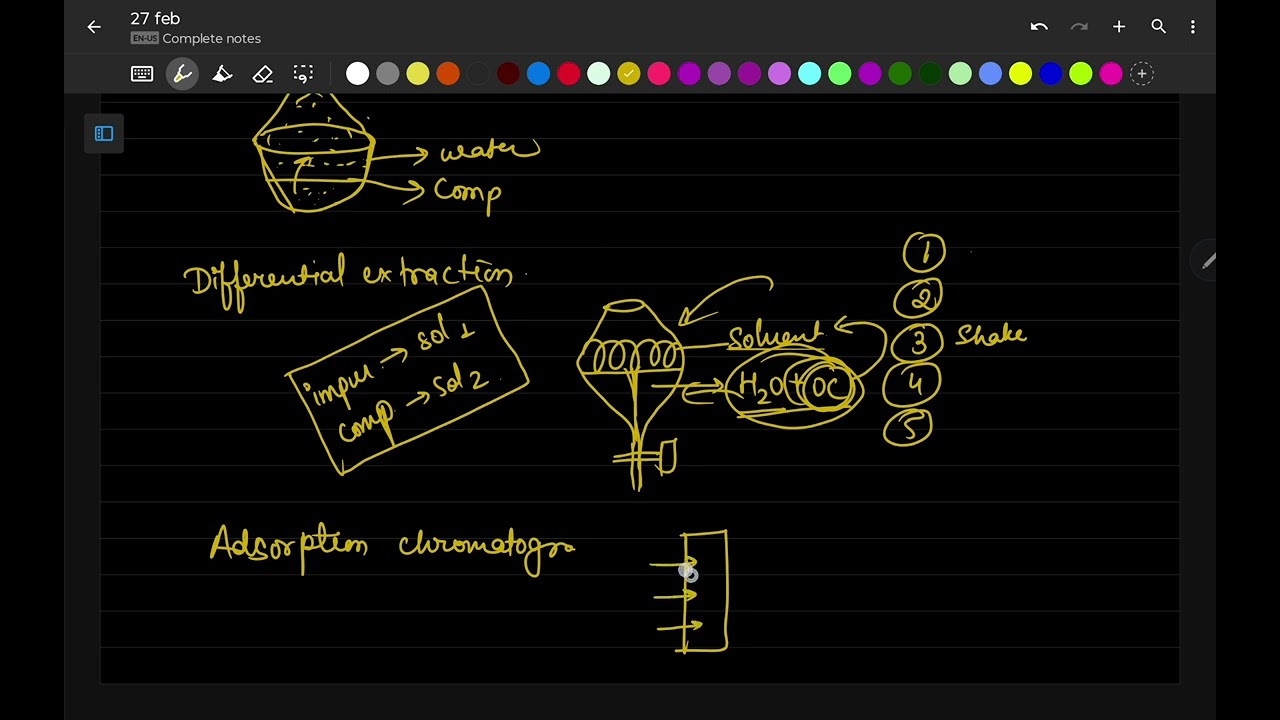 27 feb
EN-US Complete notes
water
Comp
Differential extraction
impu → sol 1
comp → sol 2
solvent
H₂O + OC
1
2
3 Shake
4
5
Adsorption chromatogra